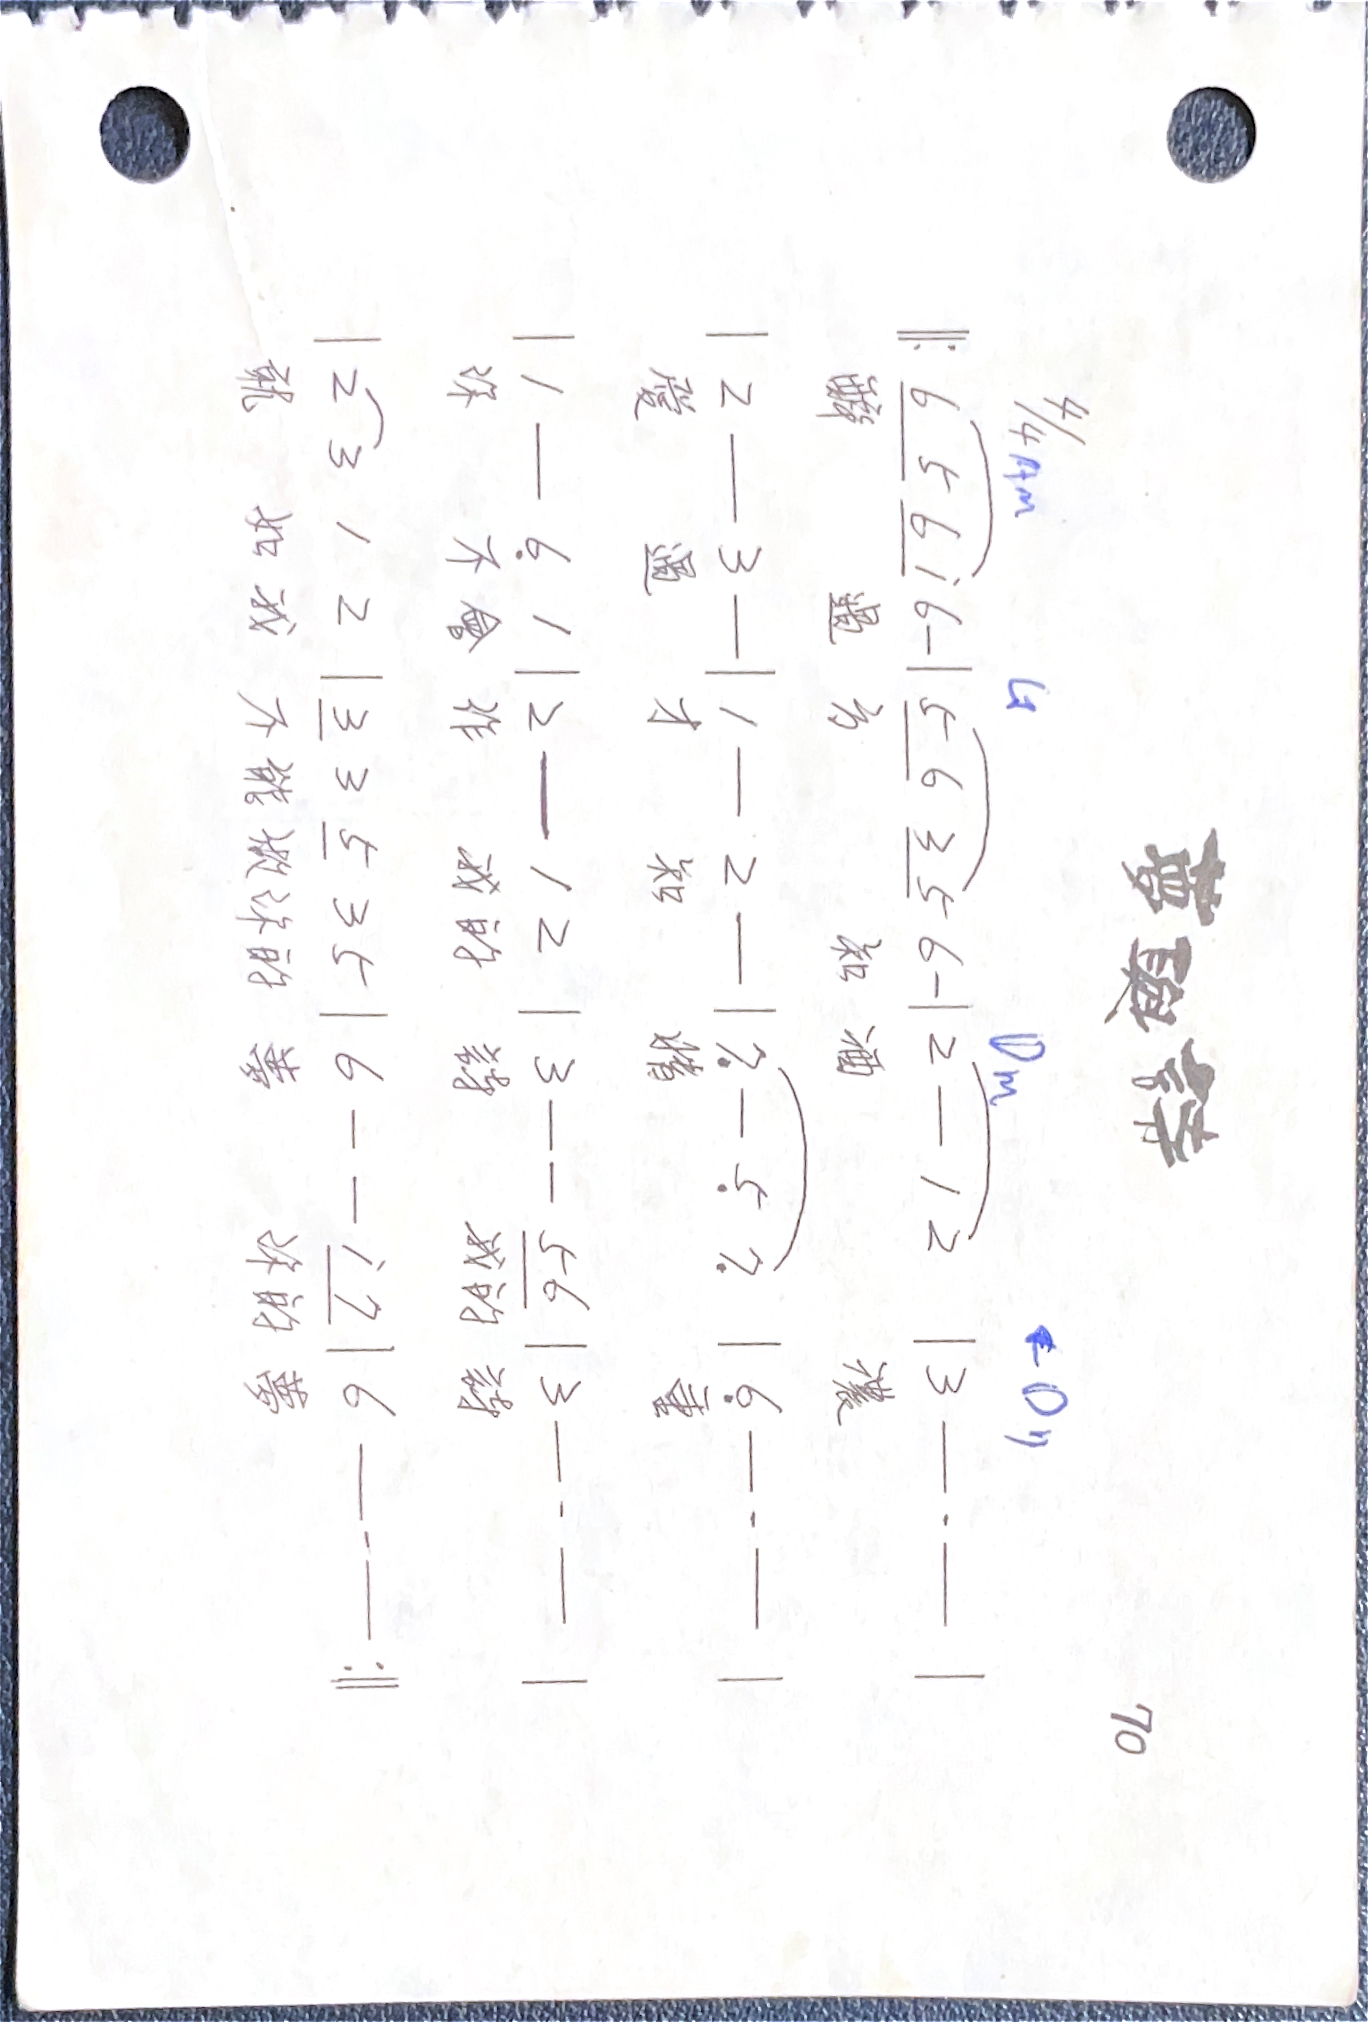 夢與詩
70
4/4 Am G Dm Dm
‖: 6 5 6 i 6 – | 5 6 3 5 6 – | 2 — 1 2 | 3 — - — |
醉 過 方 知 酒 濃
| 2 — 3 — | 1 — 2 — | 7̣ — 5̣ 7̣ | 6̣ — - — |
愛 過 才 知 情 重
| 1 — 6̣ 1 | 2 — 1 2 | 3 — — 5 6 | 3 — - — |
你 不 會 作 我 的 詩 我 的 詩
| 2 3 1 2 | 3 3 5 3 5 | 6 — — i 7 | 6 — - — :‖
就 如 我 不 能 做 你 的 夢 你 的 夢